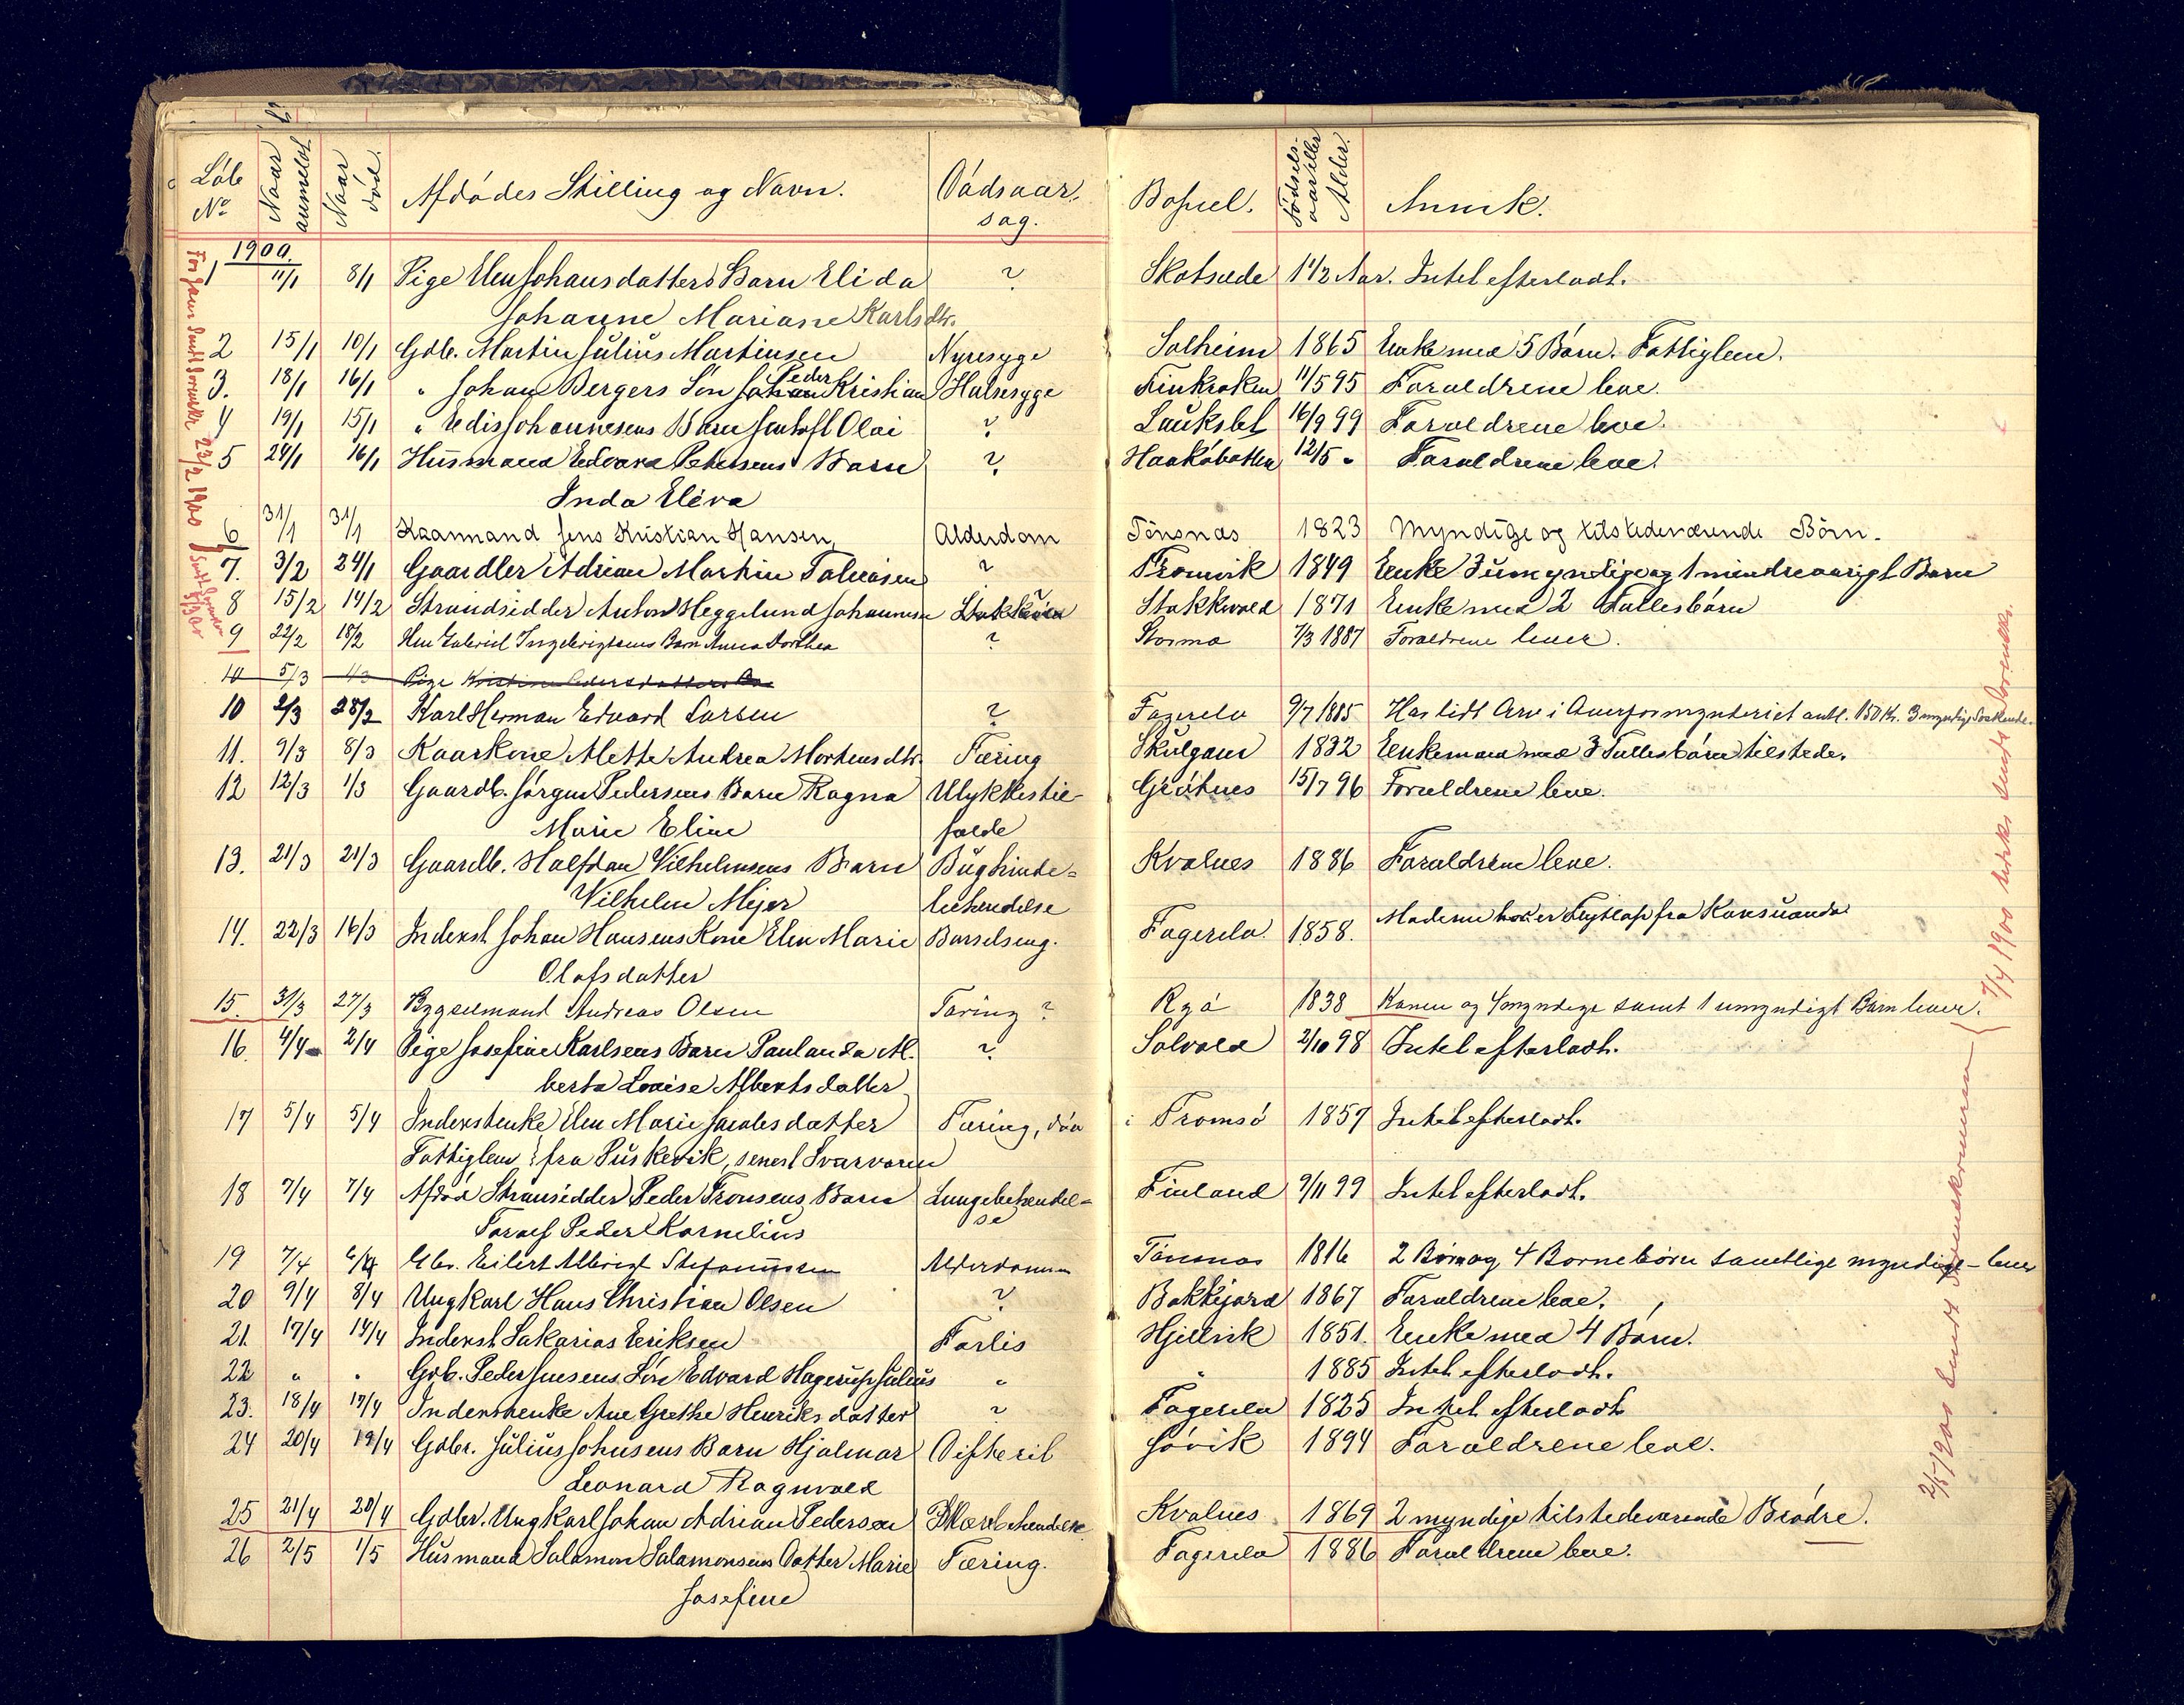 Löb No Naar anmeldt Naar död. Afdödes Stilling og Navn. Dödsaar- sag. Bopæl. Födsels- aar eller Alder. Anmk.
1900.
1 11/1 8/1 Pige Elen Johansdatters Barn Elida ? Skotsæde 1 1/2 Aar. Intet efterladt.
Johanne Mariane Karlsdtr.
2 15/1 10/1 Gdb. Martin Julius Martinsen Nyresyge Solheim 1865 Enke med 5 Börn. Fattiglem.
3. 18/1 16/1 " Johan Bergers Sön Peder Kristian Halssyge Finkroken 11/5 95 Forældrene leve.
4 19/1 15/1 " Edis Johannesens Barn Olai ? Laukslet 16/9 99 Forældrene leve.
5 24/1 16/1 Husmand Edvard Petersens Barn ? Haaköbotten 12/5 " Forældrene leve.
Inda Eleva
6 31/1 31/1 Kaarmand Jens Kristian Hansen, Alderdom Tönsnas 1823 Myndige og tilstedeværende Börn.
7. 3/2 24/1 Gaardbr Adrian Martin Tobiasen ? Tromvik 1849 Enke 3 umyndige og 1 mindreaarigt Barn
8 15/2 14/2 Strandsidder Anton Heggelund Johannesen Stakkvold 1871 Enke med 2 Fællesbörn
9 22/2 18/2 Hm Gabriel Ingebrigtsens Barn Anna Dorthea ? Stormo 7/3 1887 Forældrene lever.
10 5/3 4/3 Pige Kristine Pedersdatters Ba
10 2/3 28/2 Karl Herman Edvard Larsen ? Fagerela 9/7 1885 Har lidt Arv i Overformynderiet antl. 150 Kr. 3 myndige Söskende.
11. 9/3 8/3 Kaarkone Mette Andrea Mortensdtr. Tæring Skulgam 1832 Enkemand med 3 Fællesbörn tilstede.
12 12/3 1/3 Gaardb. Jörgen Pedersens Barn Ragna Ulykkestil- Grötnes 15/7 96 Forældrene leve.
Marie Eline fælde
13. 21/3 21/3 Gaardb. Halfdan Vilhelmsens Barn Bughinde- Kvalnes 1886 Forældrene leve.
Vilhelm Mejer betændelse
14. 22/3 16/3 Inderst Johan Hansens Kone Elen Marie Barselseng. Fagerela. 1858. Manden er Flytlap fra Karesuando
Olafsdatter
15. 31/3 27/3 Bygselmand Andreas Olsen Tæring ? Ryö 1838 Konen og 4 myndige samt 1 umyndigt Barn lever.
16. 4/4 2/4 Pige Josefine Karlsens Barn Paulanda Al- ? Solvold 2/10 98 Intet efterladt.
berta Lovise Albertsdatter
17 5/4 5/4 Inderstenke Elen Marie Jacobsdatter Tæring, död i Tromsö 1857 Intet efterladt.
Fattiglem fra Buskevik, senest Svarvaren
18 7/4 7/4 Afdöd Strandsidder Peder Tronsens Barn Lungebetændel- Finland 9/11 99 Intet efterladt.
Toralf Peder Kornelius se
19 7/4 6/4 Gbr. Eilert Albrigt Stefanussen Alderdommen Tönsnas 1816 2 Börn og 4 Bornebörn samtlige myndige - lever
20 9/4 8/4 Ungkarl Hans Christian Olsen ? Bakkejord 1867 Forældrene leve.
21. 17/4 14/4 Inderst Sakarias Eriksen Forlis Hjellvik 1851. Enke med 4 Börn.
22 " " Gdb. Peder Jensens Sön Edvard Hagerup Julius " " 1885 Intet efterladt.
23. 18/4 17/4 Inderstenke Ane Grethe Henriksdatter ? Fagerela 1825 Intet efterladt
24 20/4 19/4 Gdbr. Julius Johnsens Barn Hjalmar Difterit Jövik 1894 Forældrene leve.
Leonard Ragnvald
25 21/4 20/4 Gdbr. Ungkarl Johan Adrian Pedersen Kvalnes 1869 2 myndige tilstedeværende Brödre.
26 2/5 1/5 Husmand Salamon Salamonsens Datter Marie Tæring. Fagerela 1886 Forældrene leve.
Josefine
23/2 1900
7/4 1900
2/5 1900 Sendt